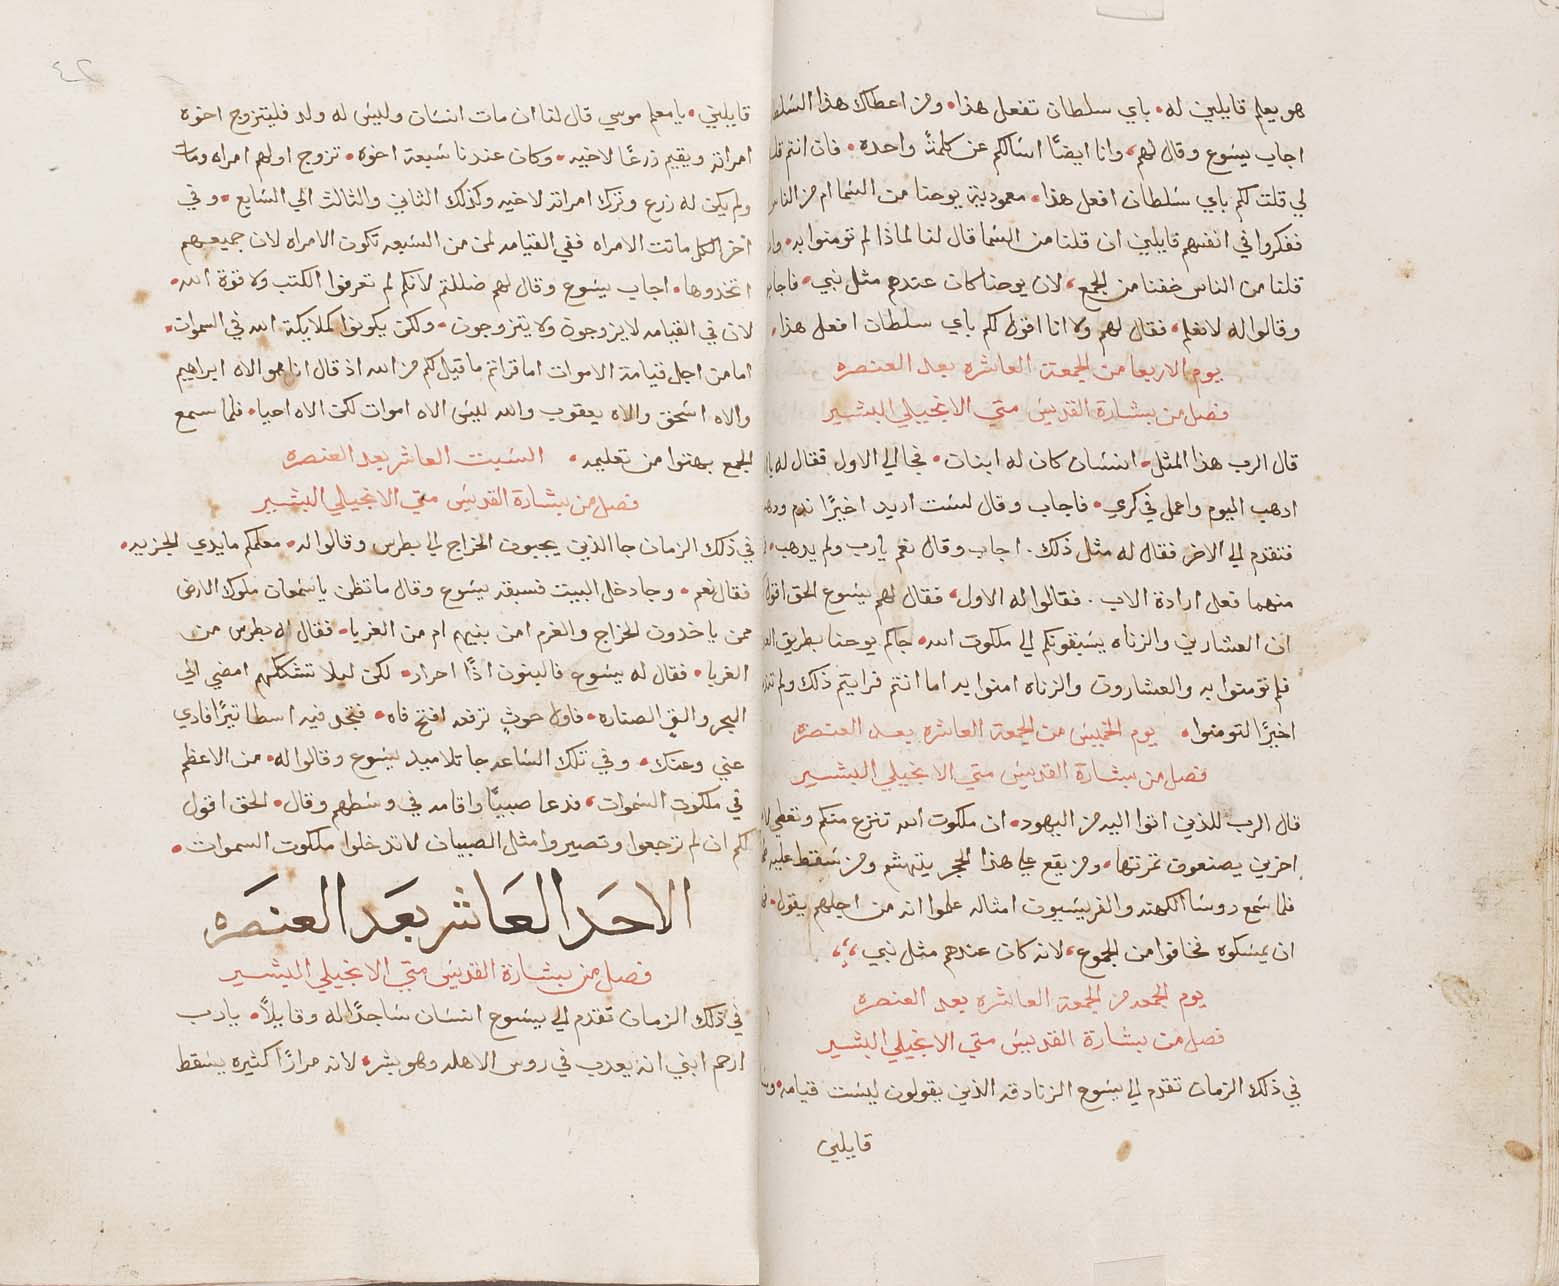 هو يعلم قايلين له • باي سلطان تفعل هذا • ومن اعطاك هذا السلطا
اجاب يسوع وقال لهم، وانا ايضًا اسالكم عن كلمةً واحده • فان انتم قلتـ
لي قلت لكم باي سلطان افعل هذا • معمودية يوحنا من السما ام من الناس
ففكروا في انفسهم قايلين ان قلنا من السما قال لنا لماذا لم تومنوا به • وان
قلنا من الناس خفنا من الجمع، لان يوحنا كان عندهم مثل نبي • فاجابو
وقالوا له لا نعلم • فقال لهم ولا انا اقول لكم باي سلطان افعل هذا •
يوم الاربعا من الجمعة العاشره بعد العنصره
فصل من بشارة القديس متي الانجيلي البشير
قال الرب هذا المثل • انسان كان له ابنان • فجا الي الاول فقال له يا
ادهب اليوم واعمل في كرمي • فاجاب وقال لست اريد اخيرًا ندم ودهب
فتقدم الي الاخر فقال له مثل ذلك . اجاب وقال نعم يارب ولم يدهب •
منهما فعل ارادة الاب . فقالوا له الاول، فقال لهم يسوع الحق اقول
ان العشارين والزناه يسبقونكم الي ملكوت الله • جاكم يوحنا بطريق
فلم تومنوا به والعشارون والزناه امنوا به اما انتم فرايتم ذلك ولم
اخيرًا لتومنوا • يوم الخميس من الجمعة العاشره بعد العنصره
فصل من بشارة القديس متي الانجيلي البشير
قال الرب للذين اتوا اليه من اليهود • ان ملكوت الله تنزع منكم وتعطي
اخرين يصنعون ثمرتها • ومن يقع علي هذا الحجر يتهشم ومن سقط عليه
فلما سمع روسا الكهنه والفريسيون امثاله علموا انه من اجلهم يقول •
ان يمسكوه فخافوا من الجموع، لانه كان عندهم مثل نبي ،،،
يوم الجمعه من الجمعة العاشره بعد العنصره
فصل من بشارة القديس متي الانجيلي البشير
في ذلك الزمان تقدم الي يسوع الزنادقه الذين يقولون ليست قيامه •
قايلين
قايلين • يا معلم موسي قال لنا ان مات انسان وليس له ولد فليتزوج اخوه
امراته ويقيم زرعًا لاخيه • وكان عندنا سبعة اخوة • تزوج اولهم امراه ومات
ولم يكن له زرع وترك امراته لاخيه وكذلك الثاني والثالث الي السابع • وفي
اخر الكل ماتت الامراه ففي القيامه لمن من السبعه تكون الامراه لان جميعهم
اتخدوها • اجاب يسوع وقال لهم ضللتم لانكم لم تعرفوا الكتب ولا قوة الله •
لان في القيامه لا يزوجون ولا يتزوجون • ولكن يكونوا كملايكة الله في السموات •
اما من اجل قيامة الاموات اما قراتم ما قيل لكم من الله اذ قال انا هو الاه ابراهيم
والاه اسحق والاه يعقوب والله ليس الاه اموات لكن الاه احيا • فلما سمع
الجمع بهتوا من تعليمه • السبت العاشر بعد العنصره
فصل من بشارة القديس متي الانجيلي البشير
في ذلك الزمان جا الذين يجبون الخراج الي بطرس وقالوا له • معلمكم ما يدي الجزيه •
فقال نعم • وجا دخل البيت فسبقه يسوع وقال ما تظن يا سمعان ملوك الارض
ممن ياخدون الخراج والغرم امن بنيهم ام من الغربا • فقال له بطرس من
الغربا • فقال له يسوع فالبنون اذًا احرار • لكن ليلا تشككهم امضي الي
البحر والق الصناره • فاول حوتٍ ترفعه افتح فاه • فتجد فيه اسطاتيرًا فادي
عني وعنك • وفي تلك الساعه جا تلاميد يسوع وقالوا له • من الاعظم
في ملكوت السموات، فدعا صبيًا واقامه في وسطهم وقال • الحق اقول
لكم ان لم ترجعوا وتصيروا مثل الصبيان لا تدخلوا ملكوت السموات •
الاحَد العَاشر بعَد العنصَره
فصل من بشارة القديس متي الانجيلي البشير
في ذلك الزمان تقدم الي يسوع انسان ساجدًا له وقايلاً • يا رب
ارحم ابني انه يعدب في روس الاهله وهو بشر • لانه مرارًا كثيره يسقط